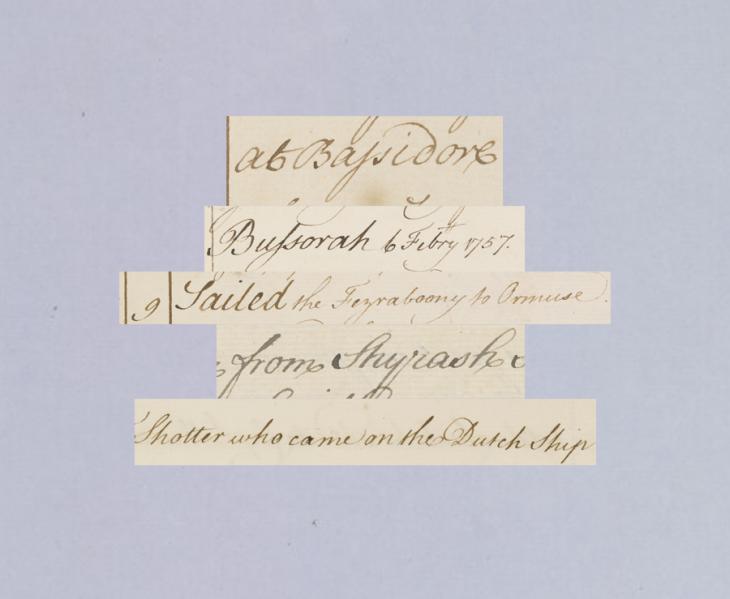 at Baſsidore
Buſsorah 6 Febry 1757.
9 Sailed the Fezraboony to Ormuse.
from Shyrash
Shotter who came on the Dutch Ship